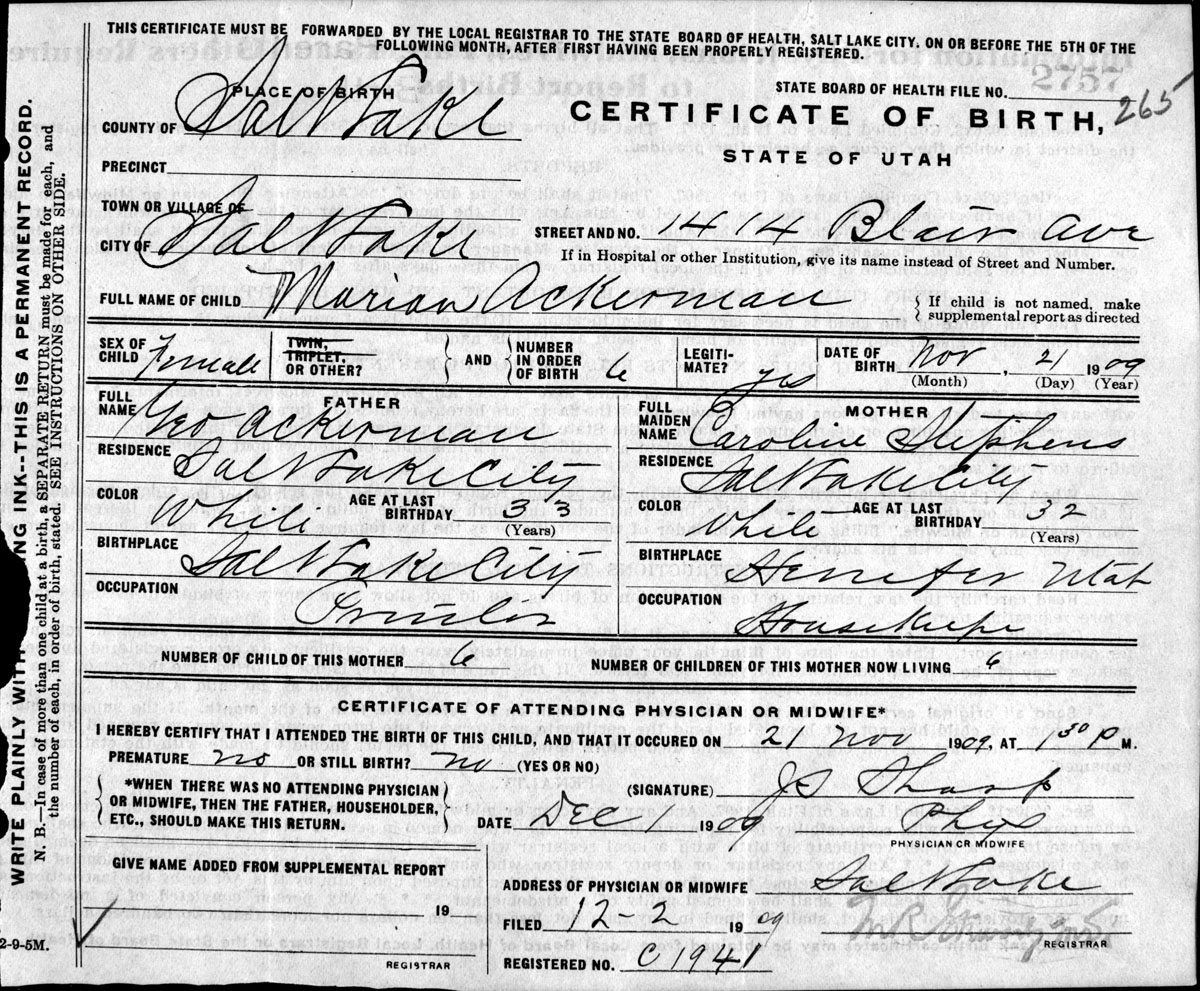 THIS CERTIFICATE MUST BE FORWARDED BY THE LOCAL REGISTRAR TO THE STATE BOARD OF HEALTH, SALT LAKE CITY, ON OR BEFORE THE 5TH OF THE
FOLLOWING MONTH, AFTER FIRST HAVING BEEN PROPERLY REGISTERED.
PLACE OF BIRTH
STATE BOARD OF HEALTH FILE NO.
2757
265
CERTIFICATE OF BIRTH,
STATE OF UTAH
COUNTY OF Salt Lake
PRECINCT
TOWN OR VILLAGE OF
CITY OF Salt Lake STREET AND NO. 44 Blair Ave
If in Hospital or other Institution, give its name instead of Street and Number.
FULL NAME OF CHILD Marian Ackerman { If child is not named, make
supplemental report as directed
SEX OF CHILD Female TWIN, TRIPLET, OR OTHER? } AND { NUMBER IN ORDER OF BIRTH 6 LEGITI-MATE? yes DATE OF BIRTH Nov, 21 1909
(Month) (Day) (Year)
FATHER
FULL NAME Geo Ackerman
RESIDENCE Salt Lake City
COLOR White AGE AT LAST BIRTHDAY 33
(Years)
BIRTHPLACE Salt Lake City
OCCUPATION Printer
MOTHER
FULL MAIDEN NAME Caroline Stephens
RESIDENCE Salt Lake City
COLOR White AGE AT LAST BIRTHDAY 32
(Years)
BIRTHPLACE Henefer Utah
OCCUPATION Housekeepe
NUMBER OF CHILD OF THIS MOTHER 6 NUMBER OF CHILDREN OF THIS MOTHER NOW LIVING 6
CERTIFICATE OF ATTENDING PHYSICIAN OR MIDWIFE*
I HEREBY CERTIFY THAT I ATTENDED THE BIRTH OF THIS CHILD, AND THAT IT OCCURED ON 21 Nov 1909, AT 1 30 P M.
PREMATURE no OR STILL BIRTH? no (YES OR NO)
{ *WHEN THERE WAS NO ATTENDING PHYSICIAN
OR MIDWIFE, THEN THE FATHER, HOUSEHOLDER,
ETC., SHOULD MAKE THIS RETURN. }
(SIGNATURE) JS Sharp
DATE Dec 1 1909 Phys
PHYSICIAN OR MIDWIFE
GIVE NAME ADDED FROM SUPPLEMENTAL REPORT
19
REGISTRAR
ADDRESS OF PHYSICIAN OR MIDWIFE Salt Lake
FILED 12-2 1909
REGISTRAR
REGISTERED NO. C1941
WRITE PLAINLY WITH ING INK--THIS IS A PERMANENT RECORD.
N. B.—In case of more than one child at a birth, a SEPARATE RETURN must be made for each, and
the number of each, in order of birth, stated. SEE INSTRUCTIONS ON OTHER SIDE.
2-9-5M.